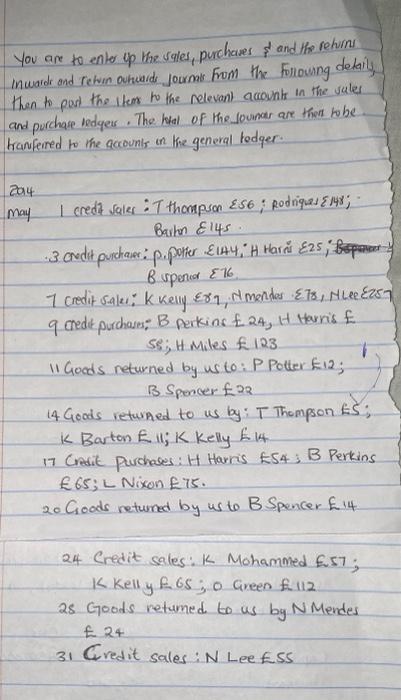 You are to enter up the sales, purchases & and the returns
Inwards and return outwards Journals From the Following details,
then to post the items to the relevant accounts in the sales
and purchase ledgers. The total of the journals are then to be
transferred to the accounts in the general ledger.
2014
May 1 credit sales: T thompson £56; Rodriguez £148;
Barton £145.
.3 credit purchases: p. potter £144; H Harris £25;
B spencer £76
7 credit sales: K Kelly £89, N mendes £78, N Lee £257
9 credit purchases; B perkins £24, H Harris £
58; H Miles £123
11 Goods returned by us to: P Potter £12;
B Spencer £22
14 Goods returned to us by: T Thompson £5;
K Barton £11; K Kelly £14
17 Credit Purchases: H Harris £54; B Perkins
£65; L Nixon £75.
20 Goods returned by us to B Spencer £14
24 Credit sales: K Mohammed £57;
K Kelly £65; O Green £112
28 Goods returned to us by N Mendes
£24
31 Credit sales: N Lee £55